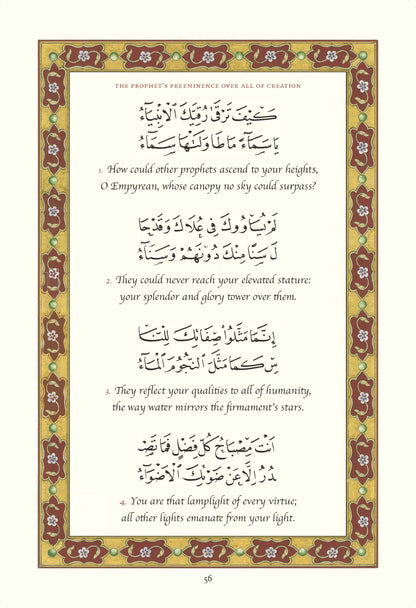 THE PROPHET'S PREEMINENCE OVER ALL OF CREATION
كَيْفَ تَرْقَى رُقِيَّكَ الْأَنْبِيَاءُ
يَا سَمَاءً مَا طَاوَلَتْهَا سَمَاءُ
1. How could other prophets ascend to your heights,
O Empyrean, whose canopy no sky could surpass?
لَمْ يُسَاوُوكَ فِي عُلَاكَ وَقَدْ حَا
لَ سَنًا مِنْكَ دُونَهُمْ وَسَنَاءُ
2. They could never reach your elevated stature:
your splendor and glory tower over them.
إِنَّمَا مَثَّلُوا صِفَاتِكَ لِلنَّا
سِ كَمَا مَثَّلَ النُّجُومَ الْمَاءُ
3. They reflect your qualities to all of humanity,
the way water mirrors the firmament's stars.
أَنْتَ مِصْبَاحُ كُلِّ فَضْلٍ فَمَا تَصْـ
ـدُرُ إِلَّا عَنْ ضَوْئِكَ الْأَضْوَاءُ
4. You are that lamplight of every virtue;
all other lights emanate from your light.
56